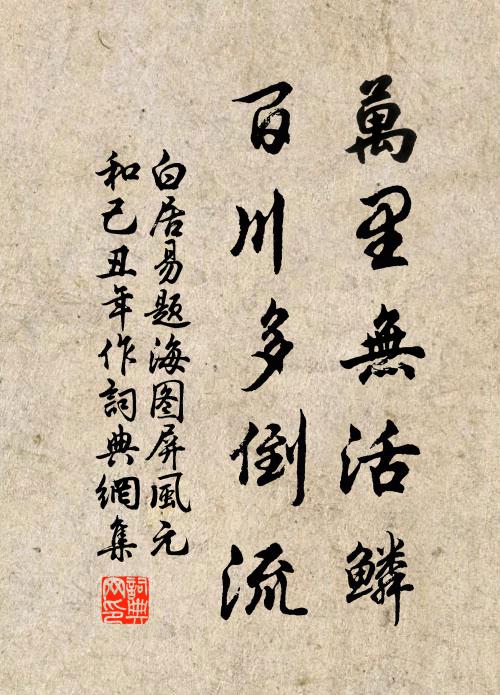 萬里無活鱗
百川多倒流
白居易題海图屏風元
和己丑年作詞典網集
詞典网印